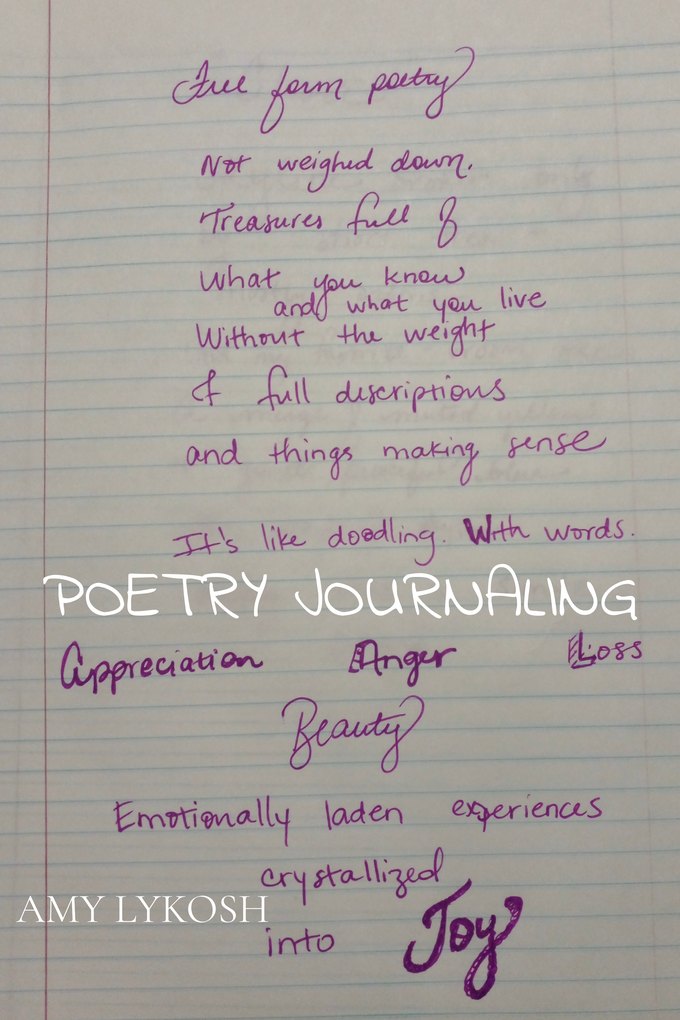 Free form poetry
Not weighed down.
Treasures full of
What you know
and what you live
Without the weight
of full descriptions
and things making sense
It's like doodling. With words.
POETRY JOURNALING
Appreciation Anger Loss
Beauty
Emotionally laden experiences
crystallized
AMY LYKOSH
into Joy